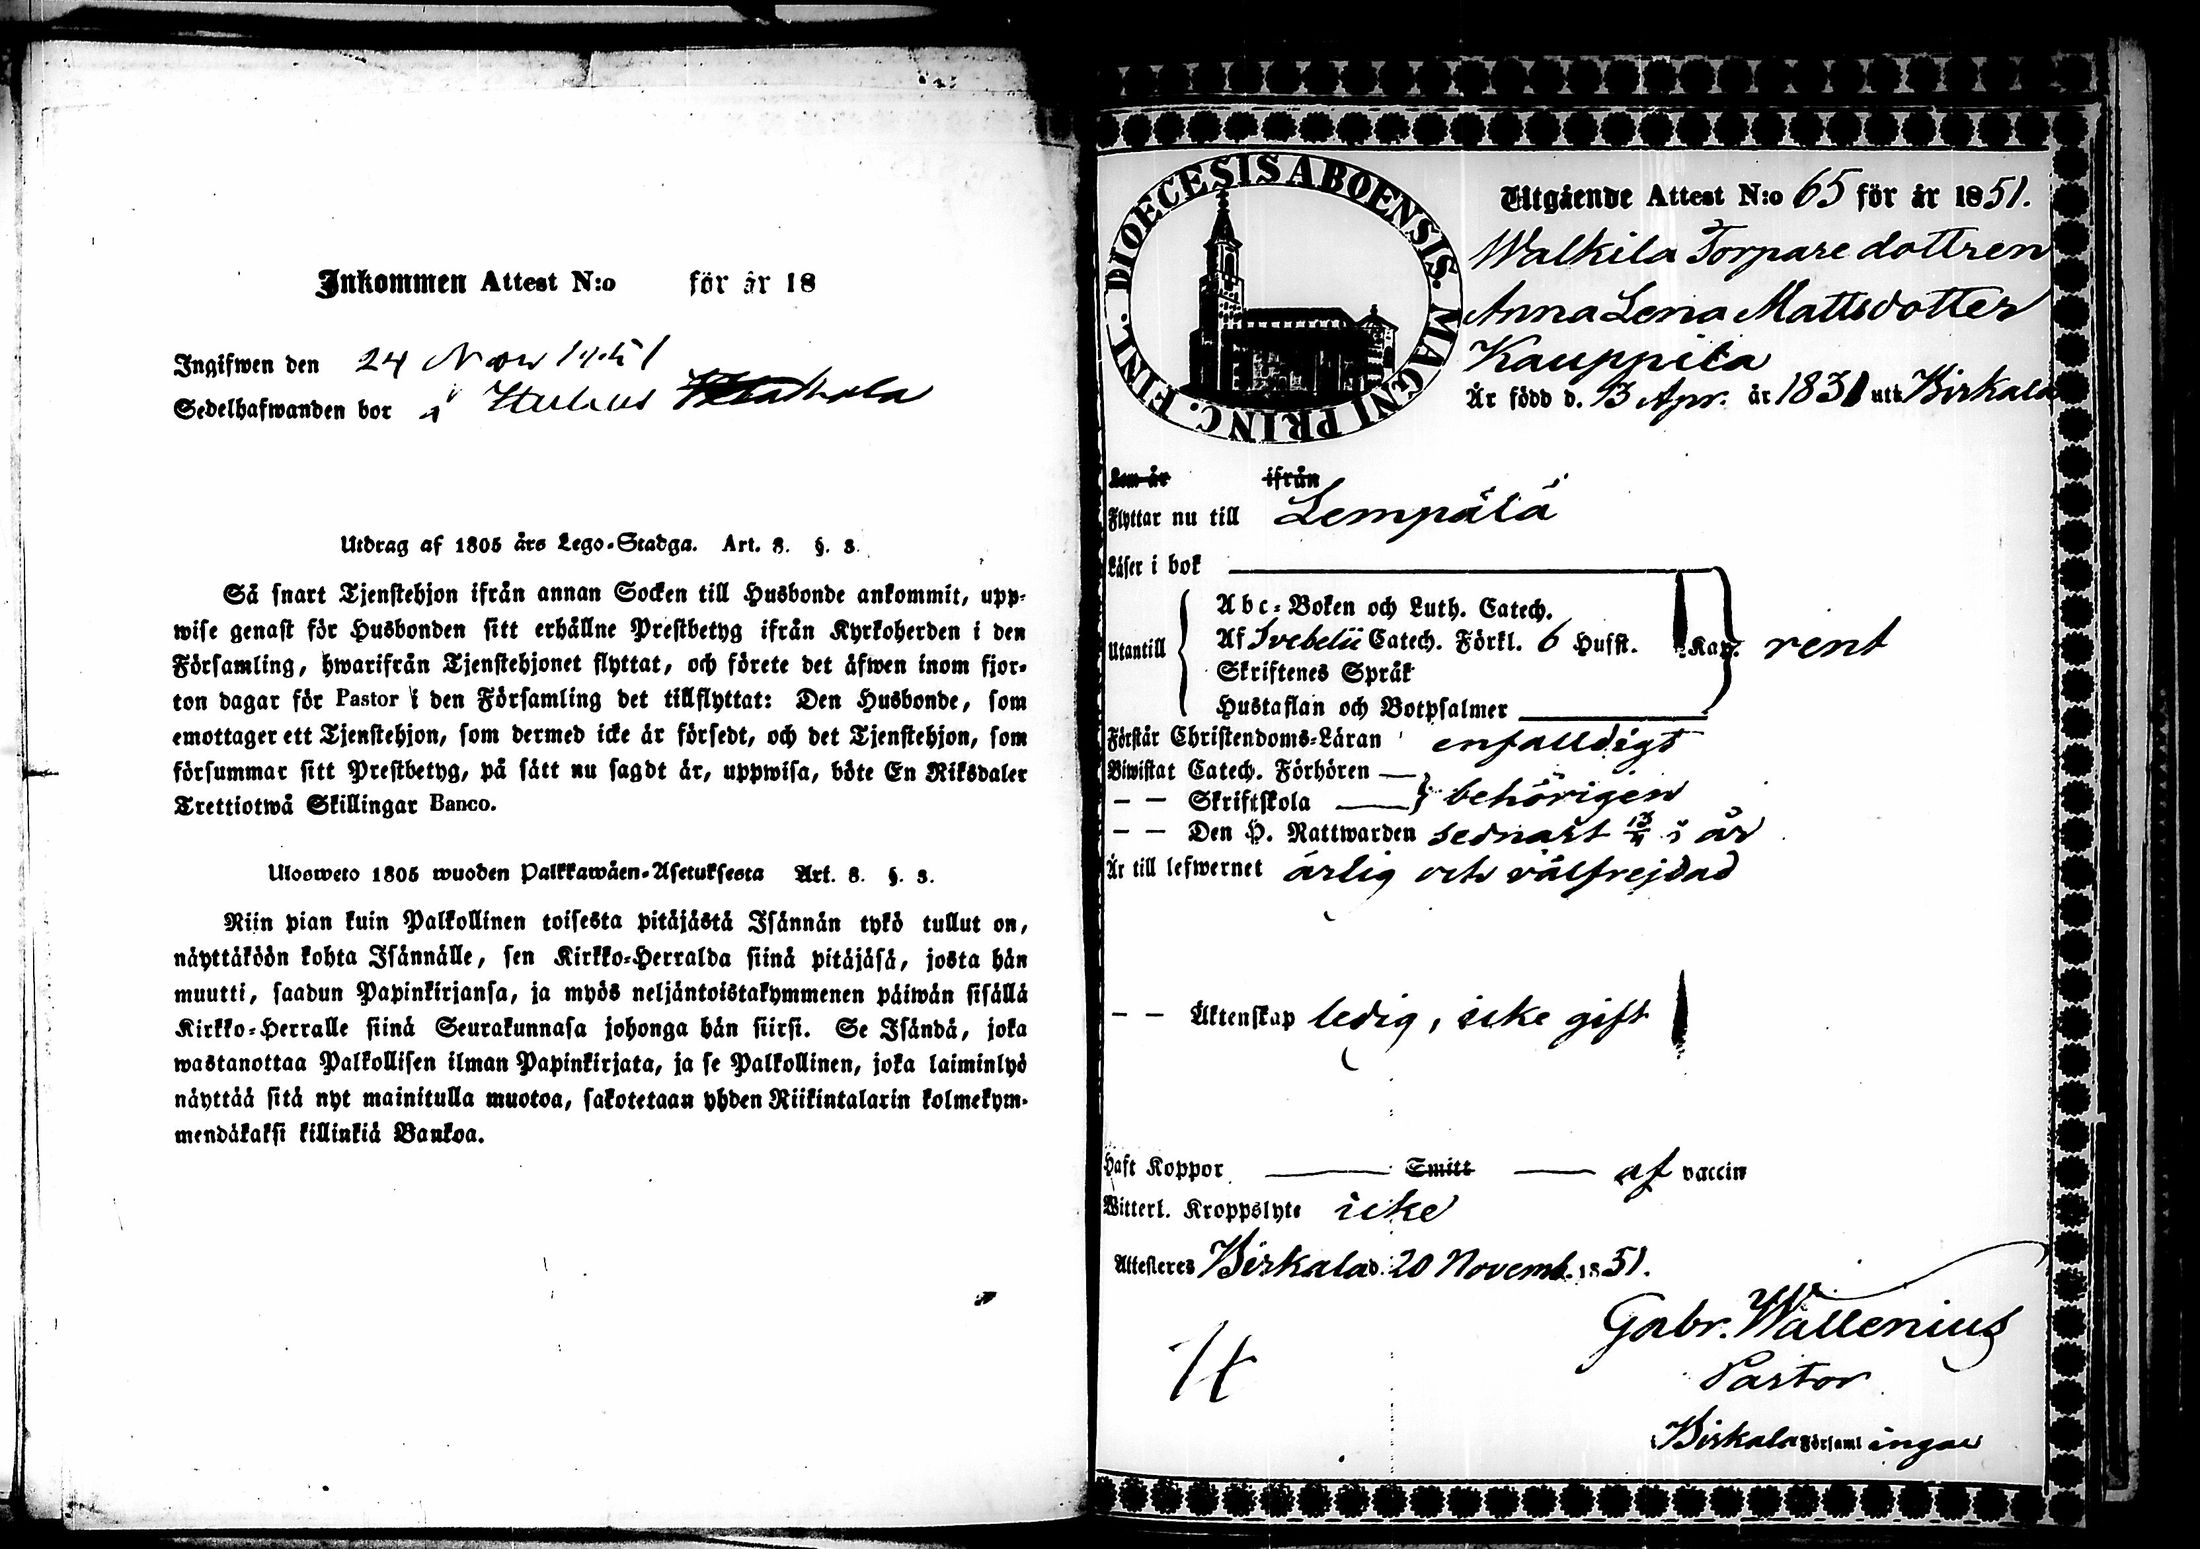 Inkommen Attest N:o för år 18
Ingifwen den 24 Nov 1851
Sedelhafwanden bor i
Utdrag af 1805 års Lego-Stadga. Art. 8. §. 3.
Så snart Tjenstehjon ifrån annan Socken till Husbonde ankommit, upp-
wise genast för Husbonden sitt erhållne Prestbetyg ifrån Kyrkoherden i den
Församling, hwarifrån Tjenstehjonet flyttat, och förete det äfwen inom fjor-
ton dagar för Pastor i den Församling det tillflyttat: Den Husbonde, som
emottager ett Tjenstehjon, som dermed icke är försedt, och det Tjenstehjon, som
försummar sitt Prestbetyg, på sätt nu sagdt är, uppwisa, böte En Riksdaler
Trettiotwå Skillingar Banco.
Ulosweto 1805 wuoden Palkkawäen-Asetuksesta Art. 8. §. 3.
Niin pian kuin Palkollinen toisesta pitäjästä Isännän tykö tullut on,
näyttäköön kohta Isännälle, sen Kirkko-Herralda siinä pitäjäsä, josta hän
muutti, saadun Papinkirjansa, ja myös neljäntoistakymmenen päiwän sisällä
Kirkko-Herralle siinä Seurakunnasa johonga hän siirsi. Se Isändä, joka
wastanottaa Palkollisen ilman Papinkirjata, ja se Palkollinen, joka laiminlyö
näyttää sitä nyt mainitulla muotoa, sakotetaan yhden Riikintalarin kolmekym-
mendäkaksi killinkiä Bankoa.
DIOECESIS ABOENSIS. MAGNI PRINC. FINL.
Utgående Attest N:o 65 för år 1851.
Walkila Torpare dottren
Anna Lena Mattsdotter
Kauppila
Är född d. 3 Apr. år 1831 uti Birkala
Kom år ifrån
Flyttar nu till Lempälä
Läser i bok
Utantill
Abc-Boken och Luth. Catech.
Af Svebelii Catech. Förkl. 6 Hufst. Kap. rent
Skriftenes Språk
Hustaflan och Botpsalmer
Förstår Christendoms-Läran enfalldigt
Biwistat Catech. Förhören
— — Skriftskola behörigen
— — Den H. Nattwarden sednast 13/4 i år
Är till lefwernet ärlig och välfrejdad
— — Äktenskap ledig, icke gift
Haft Koppor Smitt af vaccin
Witterl. Kroppslyte icke
Attesteres Birkala d. 20 Novemb. 1851.
Gabr. Wallenius
Pastor
i Birkala Församl ingar